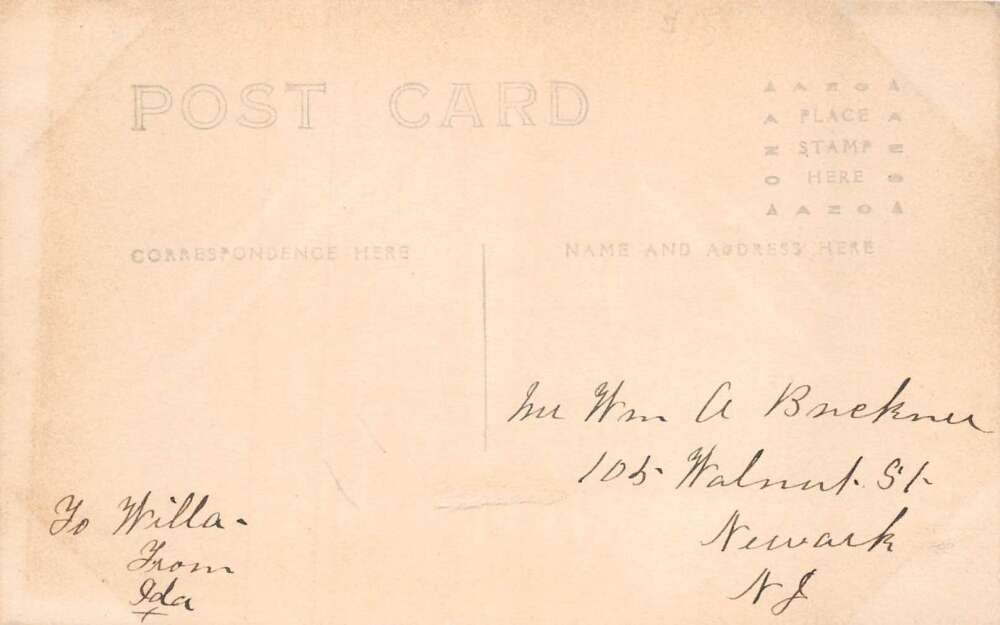 POST CARD
AZO
PLACE
STAMP
HERE
AZO
CORRESPONDENCE HERE
NAME AND ADDRESS HERE
Mr Wm A Brickner
105 Walnut St.
Newark
NJ
To Willa-
From
Ida